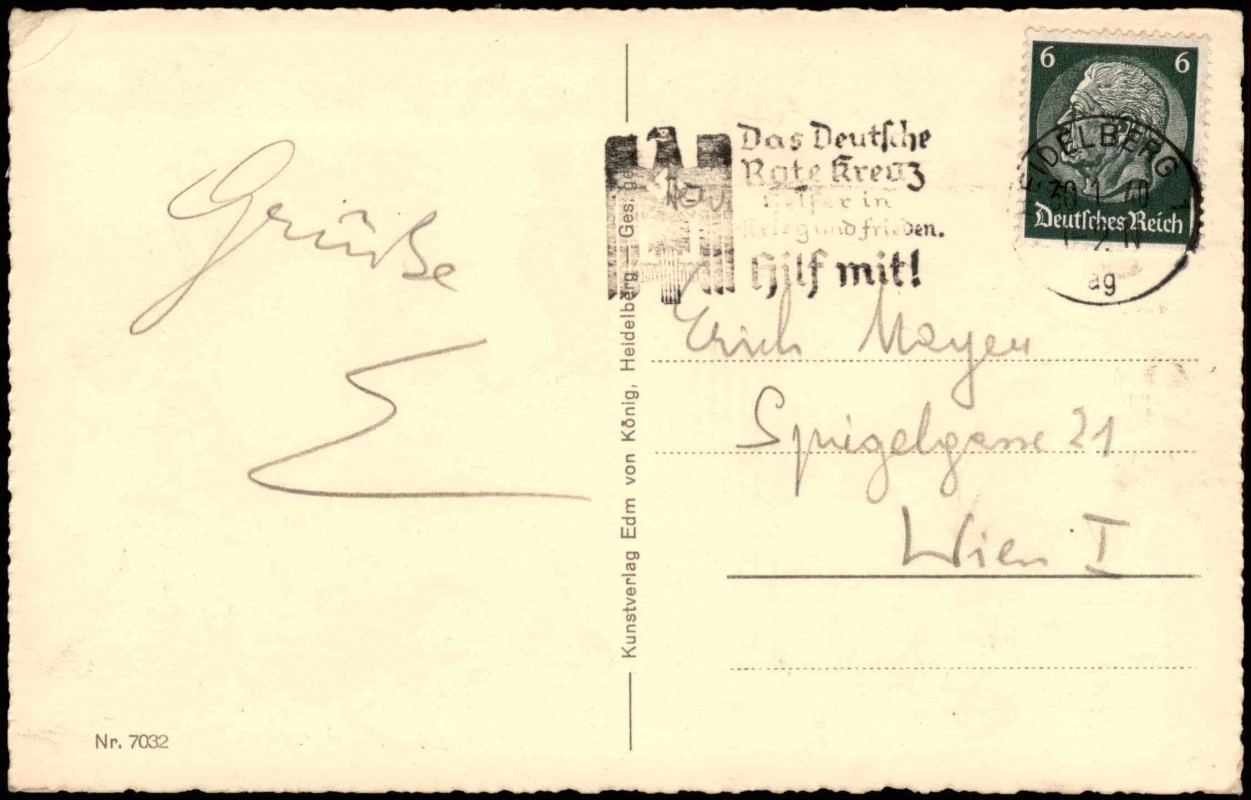 6 6
Deutsches Reich
HEIDELBERG 1
30.1.40
ag
Das Deutsche
Rote Kreuz
Helfer in
Krieg und Frieden.
Hilf mit!
Grüße
E
Kunstverlag Edm von König, Heidelberg — Ges. ge
Erich Mayer
Spiegelgasse 21
Wien I
Nr. 7032